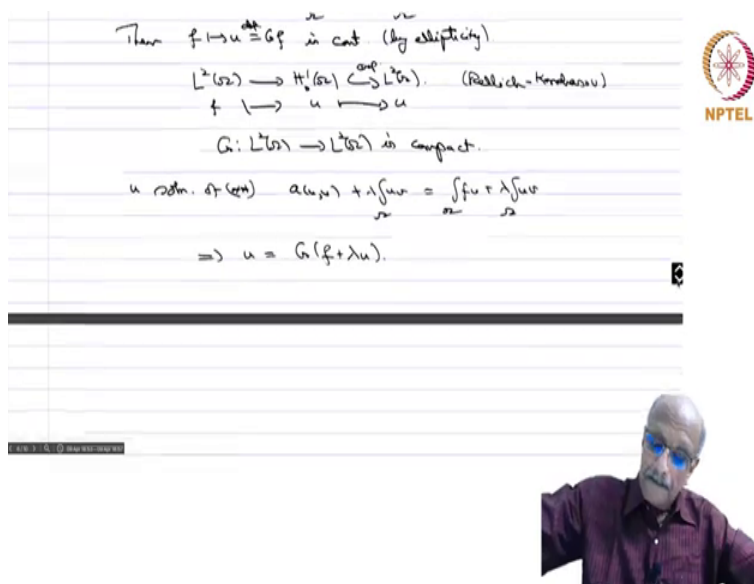 Then f ↦ u =^{def} Gf is cont. (by ellipticity)
Ω Ω
L²(Ω) ⟶ H¹₀(Ω) ↪^{comp} L²(Ω). (Rellich-Kondrasov)
f ⟼ u ⟼ u
G: L²(Ω) ⟶ L²(Ω) is compact.
u soln. of a(u,v) + λ∫_Ω uv = ∫_Ω fv + λ∫_Ω uv
⟹ u = G(f+λu).
NPTEL